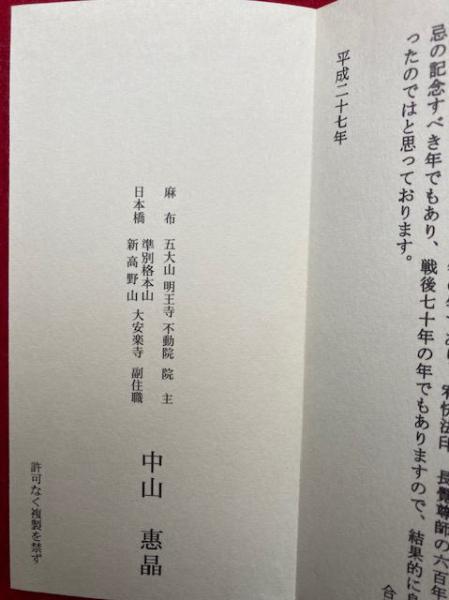 宥快法印 長覺尊師の六百年
忌の記念すべき年でもあり、戦後七十年の年でもありますので、結果的に
ったのではと思っております。
平成二十七年
合
麻布 五大山 明王寺 不動院 院主
日本橋 準別格本山 新高野山 大安楽寺 副住職
中山 惠晶
許可なく複製を禁ず